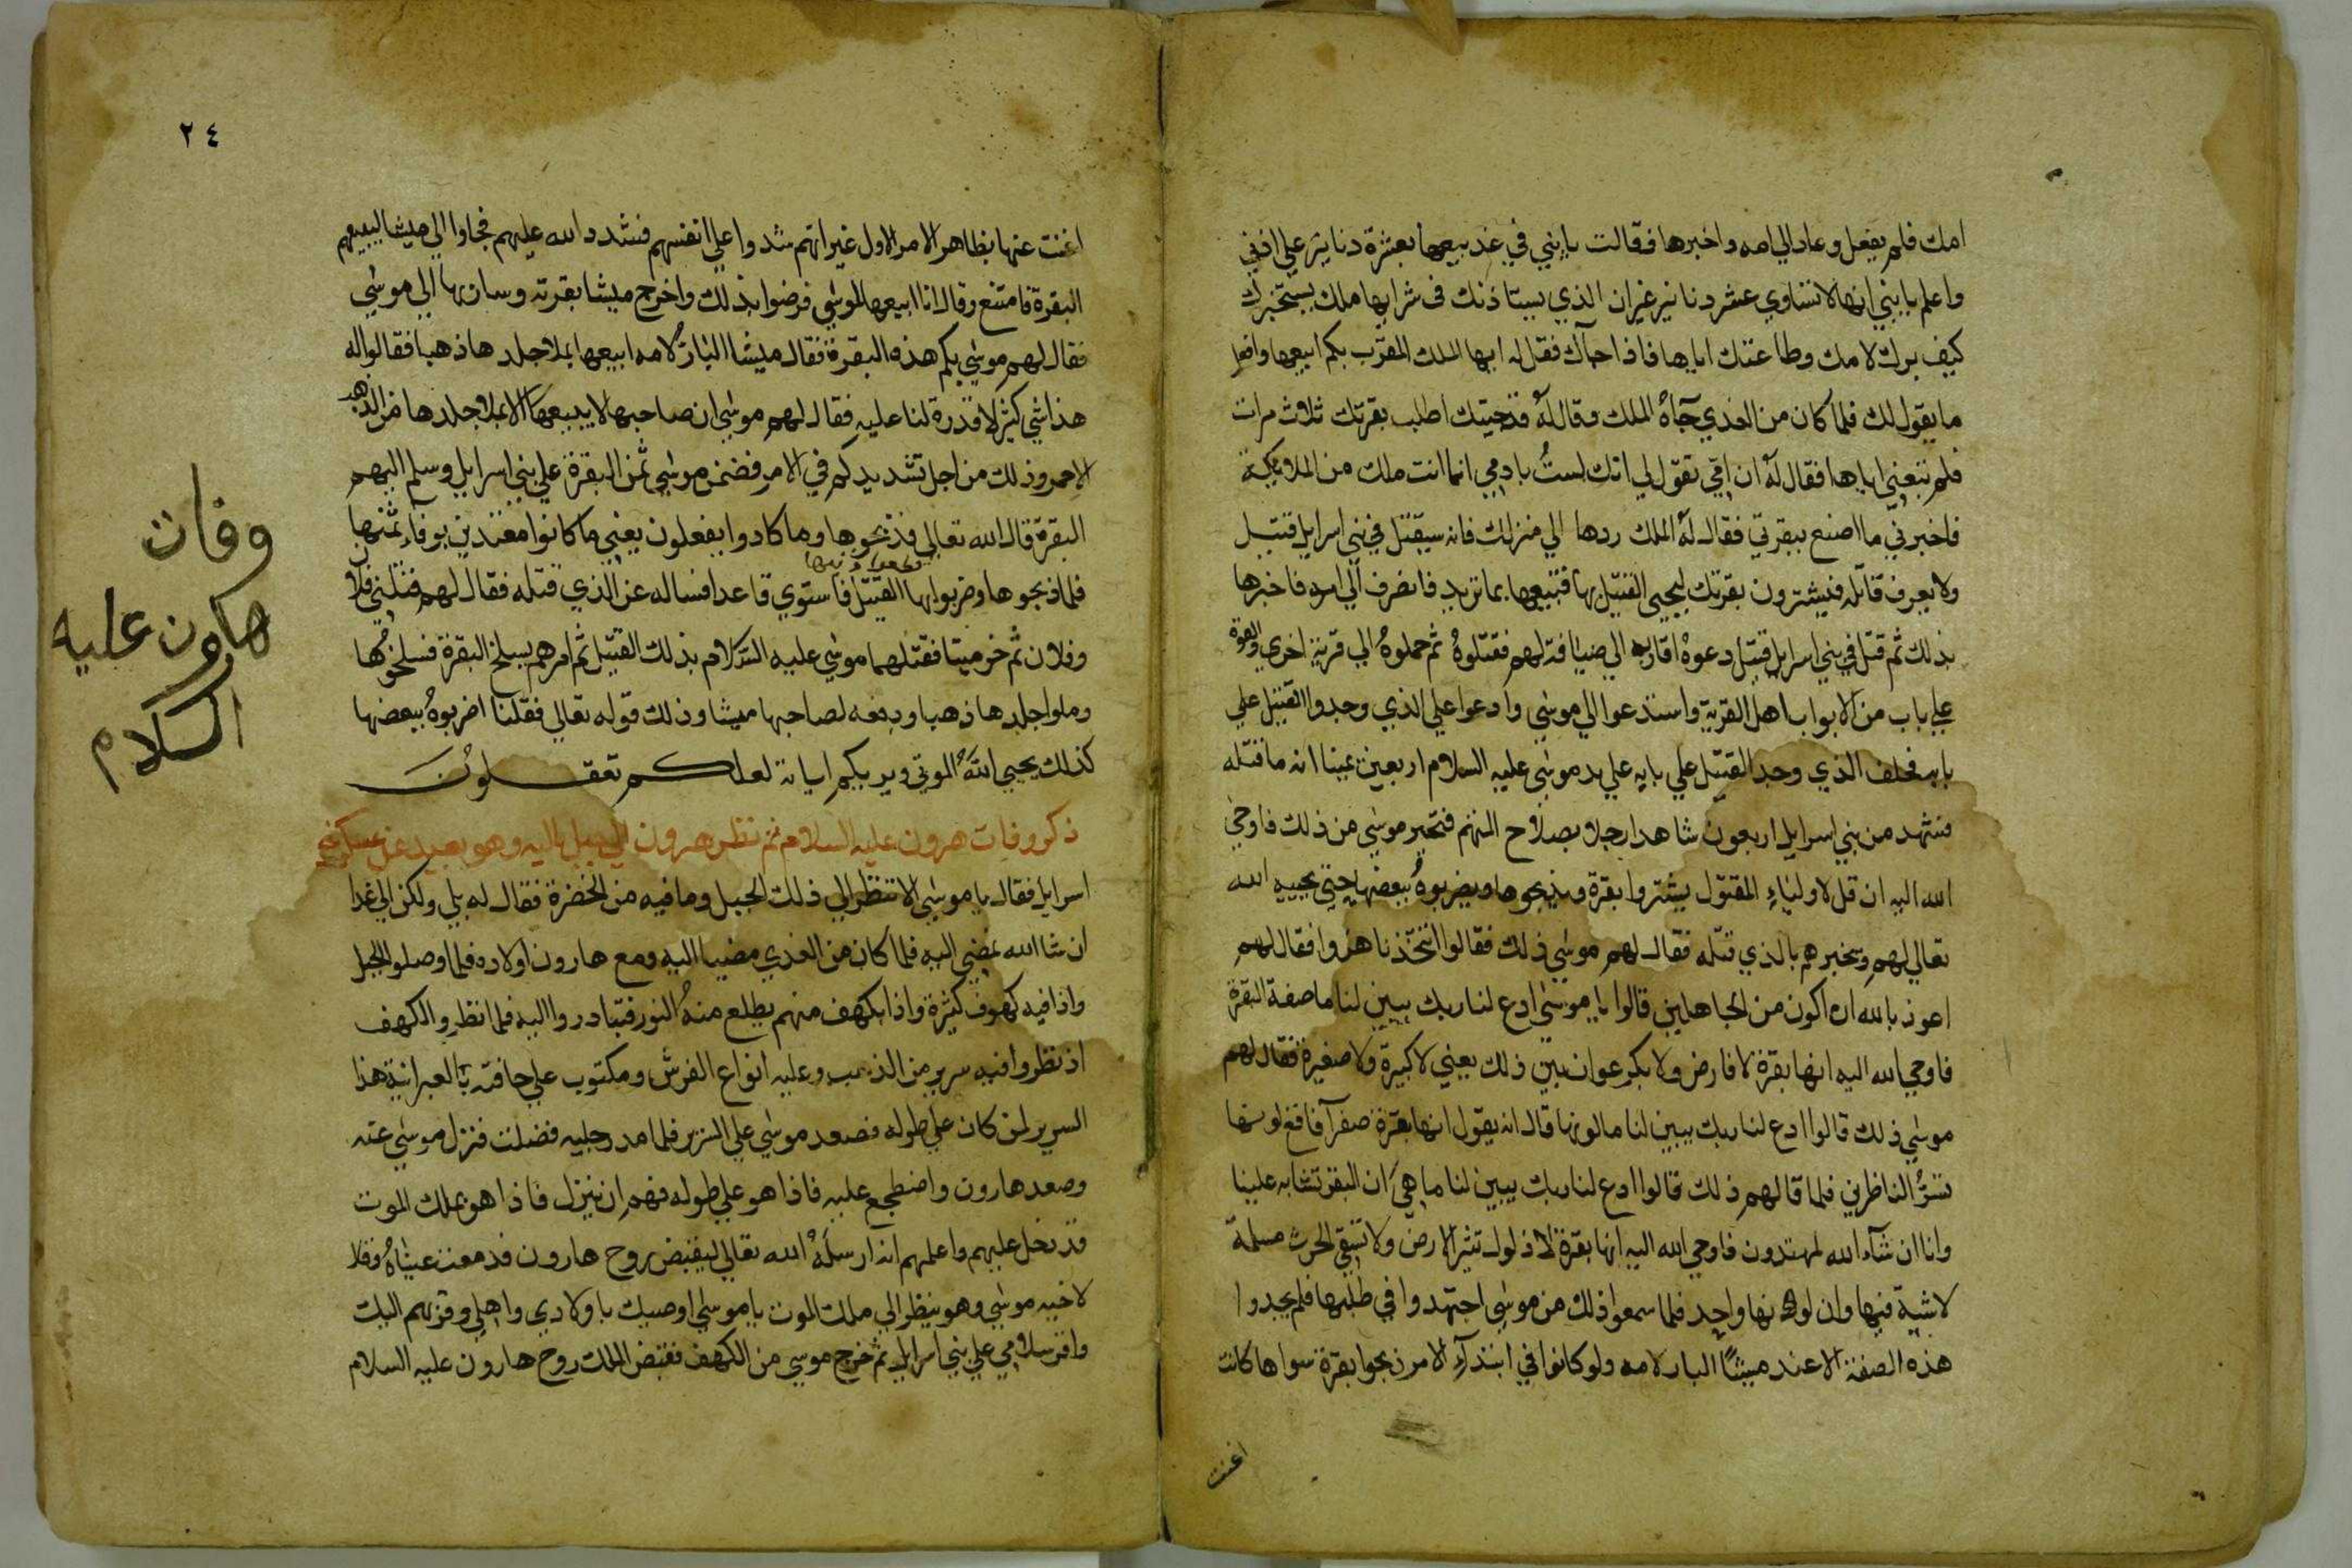 امك فلم يفعل وعاد الي امه واخبرها فقالت يا بني في غد بيعها بعشرة دنانير علي اذني
واعلم يا بني انها لا تساوي عشر دنانير غير ان الذي يستاذنك في شرايها ملك يستخبرك
كيف برك لامك وطاعتك اياها فاذا جآك فقل له ايها الملك المقرب بكم ابيعها وافعل
ما يقول لك فلما كان من الغدي جآهُ الملك وقال لهُ قد جيتك اطلب بقرتك ثلاث مرات
فلم تبعني اياها فقال لهُ ان امي تقول لي انك لستُ بادمي انما انت ملك من الملايكة
فاخبرني ما اصنع ببقرتي فقال لهُ الملك ردها الي منزلك فانه سيقتل في بني اسرايل قتيل
ولا يعرف قاتله فيشترون بقرتك ليحيي القتيل بها فتبيعها بما تريد فانصرف الي امه فاخبرها
بذلك ثم قتل في بني اسرايل قتيل دعوهُ اقاربه الي ضيافة لهم فقتلوهُ ثم حملوهُ الي قرية اخري والقوه
علي باب من الابواب اهل القرية واستدعوا الي موسي وادعوا علي الذي وجدوا القتيل علي
بابه فحلف الذي وجد القتيل علي بابه علي يد موسي عليه السلام اربعين يمينا انه ما قتله
فشهد من بني اسرايل اربعون شاهدا رجلا بصلاح المتهم فتحير موسي من ذلك فاوحي
الله اليه ان قل لاولياءِ المقتول يشتروا بقرة ويذبحوها ويضربوهُ ببعضها حتي يحييه الله
تعالي لهم ويخبرهم بالذي قتله فقال لهم موسي ذلك فقالوا اتتخذنا هزوا فقال لهم
اعوذ بالله ان اكون من الجاهلين قالوا يا موسي ادع لنا ربك يبين لنا ما صفة البقرة
فاوحي الله اليه انها بقرة لا فارض ولا بكر عوان بين ذلك يعني لا كبيرة ولا صغيرة فقال لهم
موسي ذلك قالوا ادع لنا ربك يبين لنا ما لونها قال انه يقول انها بقرة صفرآ فاقع لونها
تسرُّ الناظرين فلما قال لهم ذلك قالوا ادع لنا ربك يبين لنا ما هي ان البقر تشابه علينا
وانا ان شآء الله لمهتدون فاوحي الله اليه انها بقرة لا ذلول تثير الارض ولا تسقي الحرث مسلمة
لا شية فيها وان لونها واحد فلما سمعوا ذلك من موسي اجتهدوا في طلبها فلم يجدوا
هذه الصفة الا عند ميشا البار لامه ولو كانوا في ابتدآءِ الامر ذبحوا بقرة سواها كانت
اغنت
٢٤
اغنت عنها بظاهر الامر الاول غير انهم شددوا علي انفسهم فشدد الله عليهم فجاوا الي ميشا ليبيعهم
البقرة فامتنع وقال انا ابيعها لموسي فرضوا بذلك واخرج ميشا بقرته وسار بها الي موسي
فقال لهم موسي بكم هذه البقرة فقال ميشا البارُّ لامه ابيعها بملا جلدها ذهبا فقالوا له
هذا شي كثير لا قدرة لنا عليه فقال لهم موسي ان صاحبها لا يبيعها الا بملا جلدها من الذهب
الاحمر وذلك من اجل تشديدكم في الامر فضمن موسي ثمن البقرة علي بني اسرايل وسلم اليهم
البقرة قال الله تعالي فذبحوها وما كادوا يفعلون يعني ما كانوا معتدين بوفاءِ ثمنها
فلما ذبحوها وضربوا بها القتيل فاستوي قاعدا فساله عن الذي قتله فقال لهم قتلني فلان
وفلان ثم خر ميتا فقتلهما موسي عليه السلام بذلك القتيل ثم امرهم بسلخ البقرة فسلخوها
وملوا جلدها ذهبا ودفعه لصاحبها ميشا وذلك قوله تعالي فقلنا اضربوهُ ببعضها
كذلك يحيي اللهُ الموتي ويريكم اياته لعلكم تعقلونَ
ذكر وفات هرون عليه السلام ثم نظر هرون الي جبل اليه وهو بعيد عن عسكر بني
اسرايل فقال يا موسي الا تنظر الي ذلك الجبل وما فيه من الخضرة فقال له بلي ولكن الي غدا
ان شا الله نمضي اليه فلما كان من الغدي مضيا اليه ومع هارون اولاده فلما وصلوا الجبل
واذا فيه كهوف كثيرة واذا بكهف منهم يطلع منهُ النور فتبادروا اليه فلما نظروا الكهف
اذ نظروا فيه سرير من الذهب وعليه انواع الفرش ومكتوب علي حافته بالعبرانية هذا
السرير لمن كان علي طوله فصعد موسي علي السرير فلما مد رجليه فضلت فنزل موسي عنه
وصعد هارون واضطجع عليه فاذا هو علي طوله فهم ان ينزل فاذا هو بملك الموت
قد دخل عليهم واعلمهم انه ارسلهُ الله تعالي ليقبض روح هارون فدمعت عيناهُ وقال
لاخيه موسي وهو ينظر الي ملك الموت يا موسي اوصيك باولادي واهلي وقربهم اليك
واقر سلامي علي بني اسرايل ثم خرج موسي من الكهف فقبض الملك روح هارون عليه السلام
وفات
هارون عليه
السلام